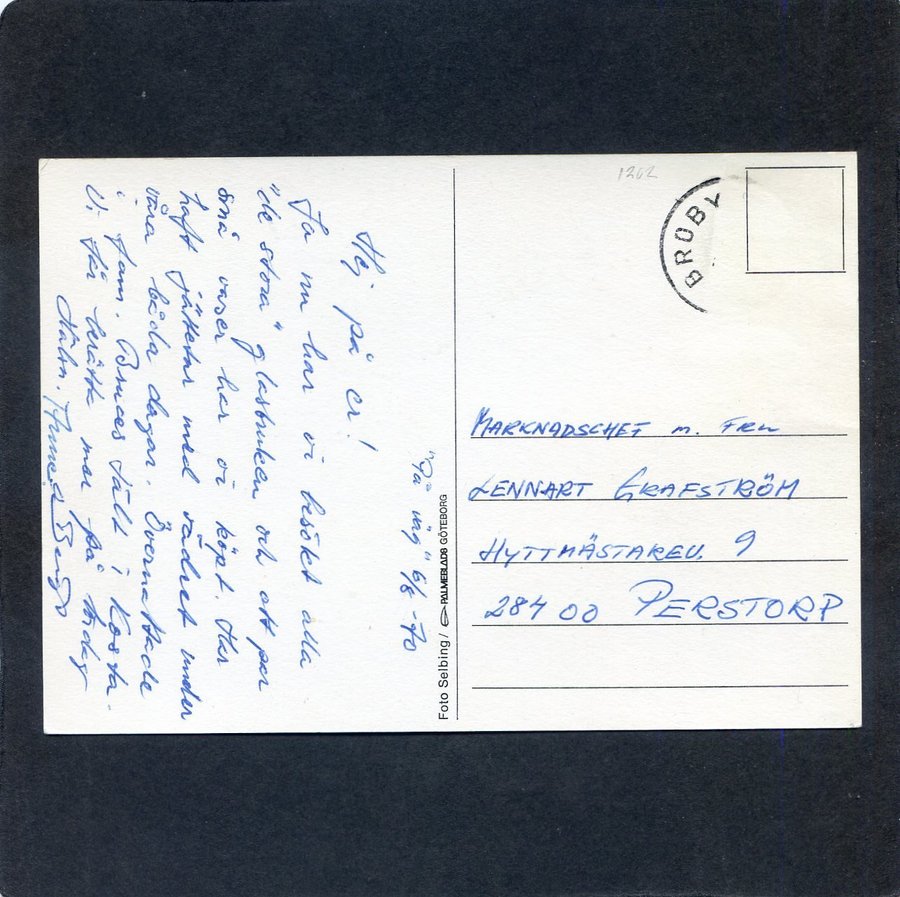 "På väg" 6/8 -70
Hej på er!
Ja nu har vi besökt alla
"de stora" glasbruken och ett par
små vaser har vi köpt. Har
haft jättetur med vädret under
våra båda dagar. Övernattade
i fam. Bruces tält i Kosta.
Vi får berätta mer på
Hälsn.
Foto Selbing / PALMEBLADS GÖTEBORG
1202
BROBY
MARKNADSCHEF m. FRU
LENNART GRAFSTRÖM
HYTTMÄSTAREV. 9
284 00 PERSTORP